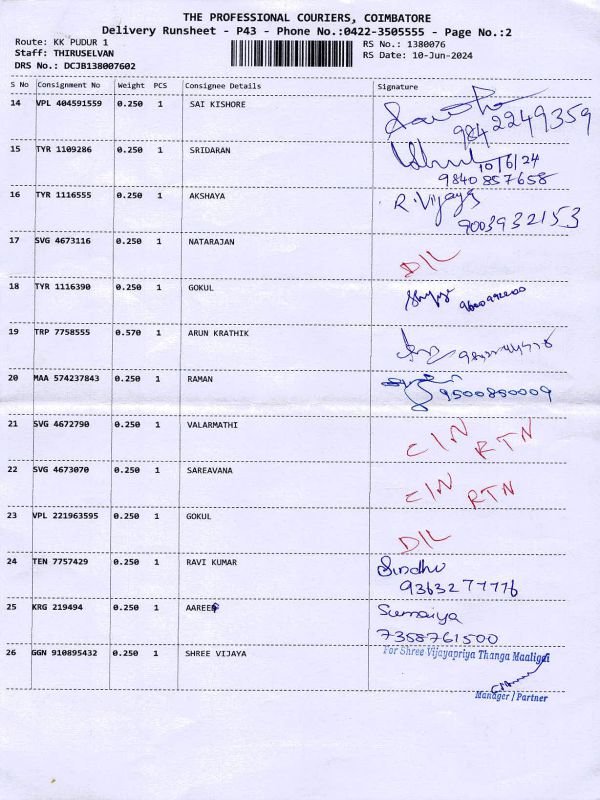 THE PROFESSIONAL COURIERS, COIMBATORE
Delivery Runsheet - P43 - Phone No.:0422-3505555 - Page No.:2
Route: KK PUDUR 1 RS No.: 1380076
Staff: THIRUSELVAN RS Date: 10-Jun-2024
DRS No.: DCJB138007602
S No Consignment No Weight PCS Consignee Details Signature
14 VPL 404591559 0.250 1 SAI KISHORE
9842249359
15 TYR 1109286 0.250 1 SRIDARAN
10/6/24
9840857658
16 TYR 1116555 0.250 1 AKSHAYA R. Vijaya
9003932153
17 SVG 4673116 0.250 1 NATARAJAN
D/L
18 TYR 1116390 0.250 1 GOKUL
19 TRP 7758555 0.570 1 ARUN KRATHIK
20 MAA 574237843 0.250 1 RAMAN
9500850009
21 SVG 4672790 0.250 1 VALARMATHI
C/N RTN
22 SVG 4673070 0.250 1 SAREAVANA
C/N RTN
23 VPL 221963595 0.250 1 GOKUL
D/L
24 TEN 7757429 0.250 1 RAVI KUMAR Sindhu
9363277776
25 KRG 219494 0.250 1 AAREEF Sumaiya
7358761500
26 GGN 910895432 0.250 1 SHREE VIJAYA For Shree Vijayapriya Thanga Maaligai
Manager / Partner